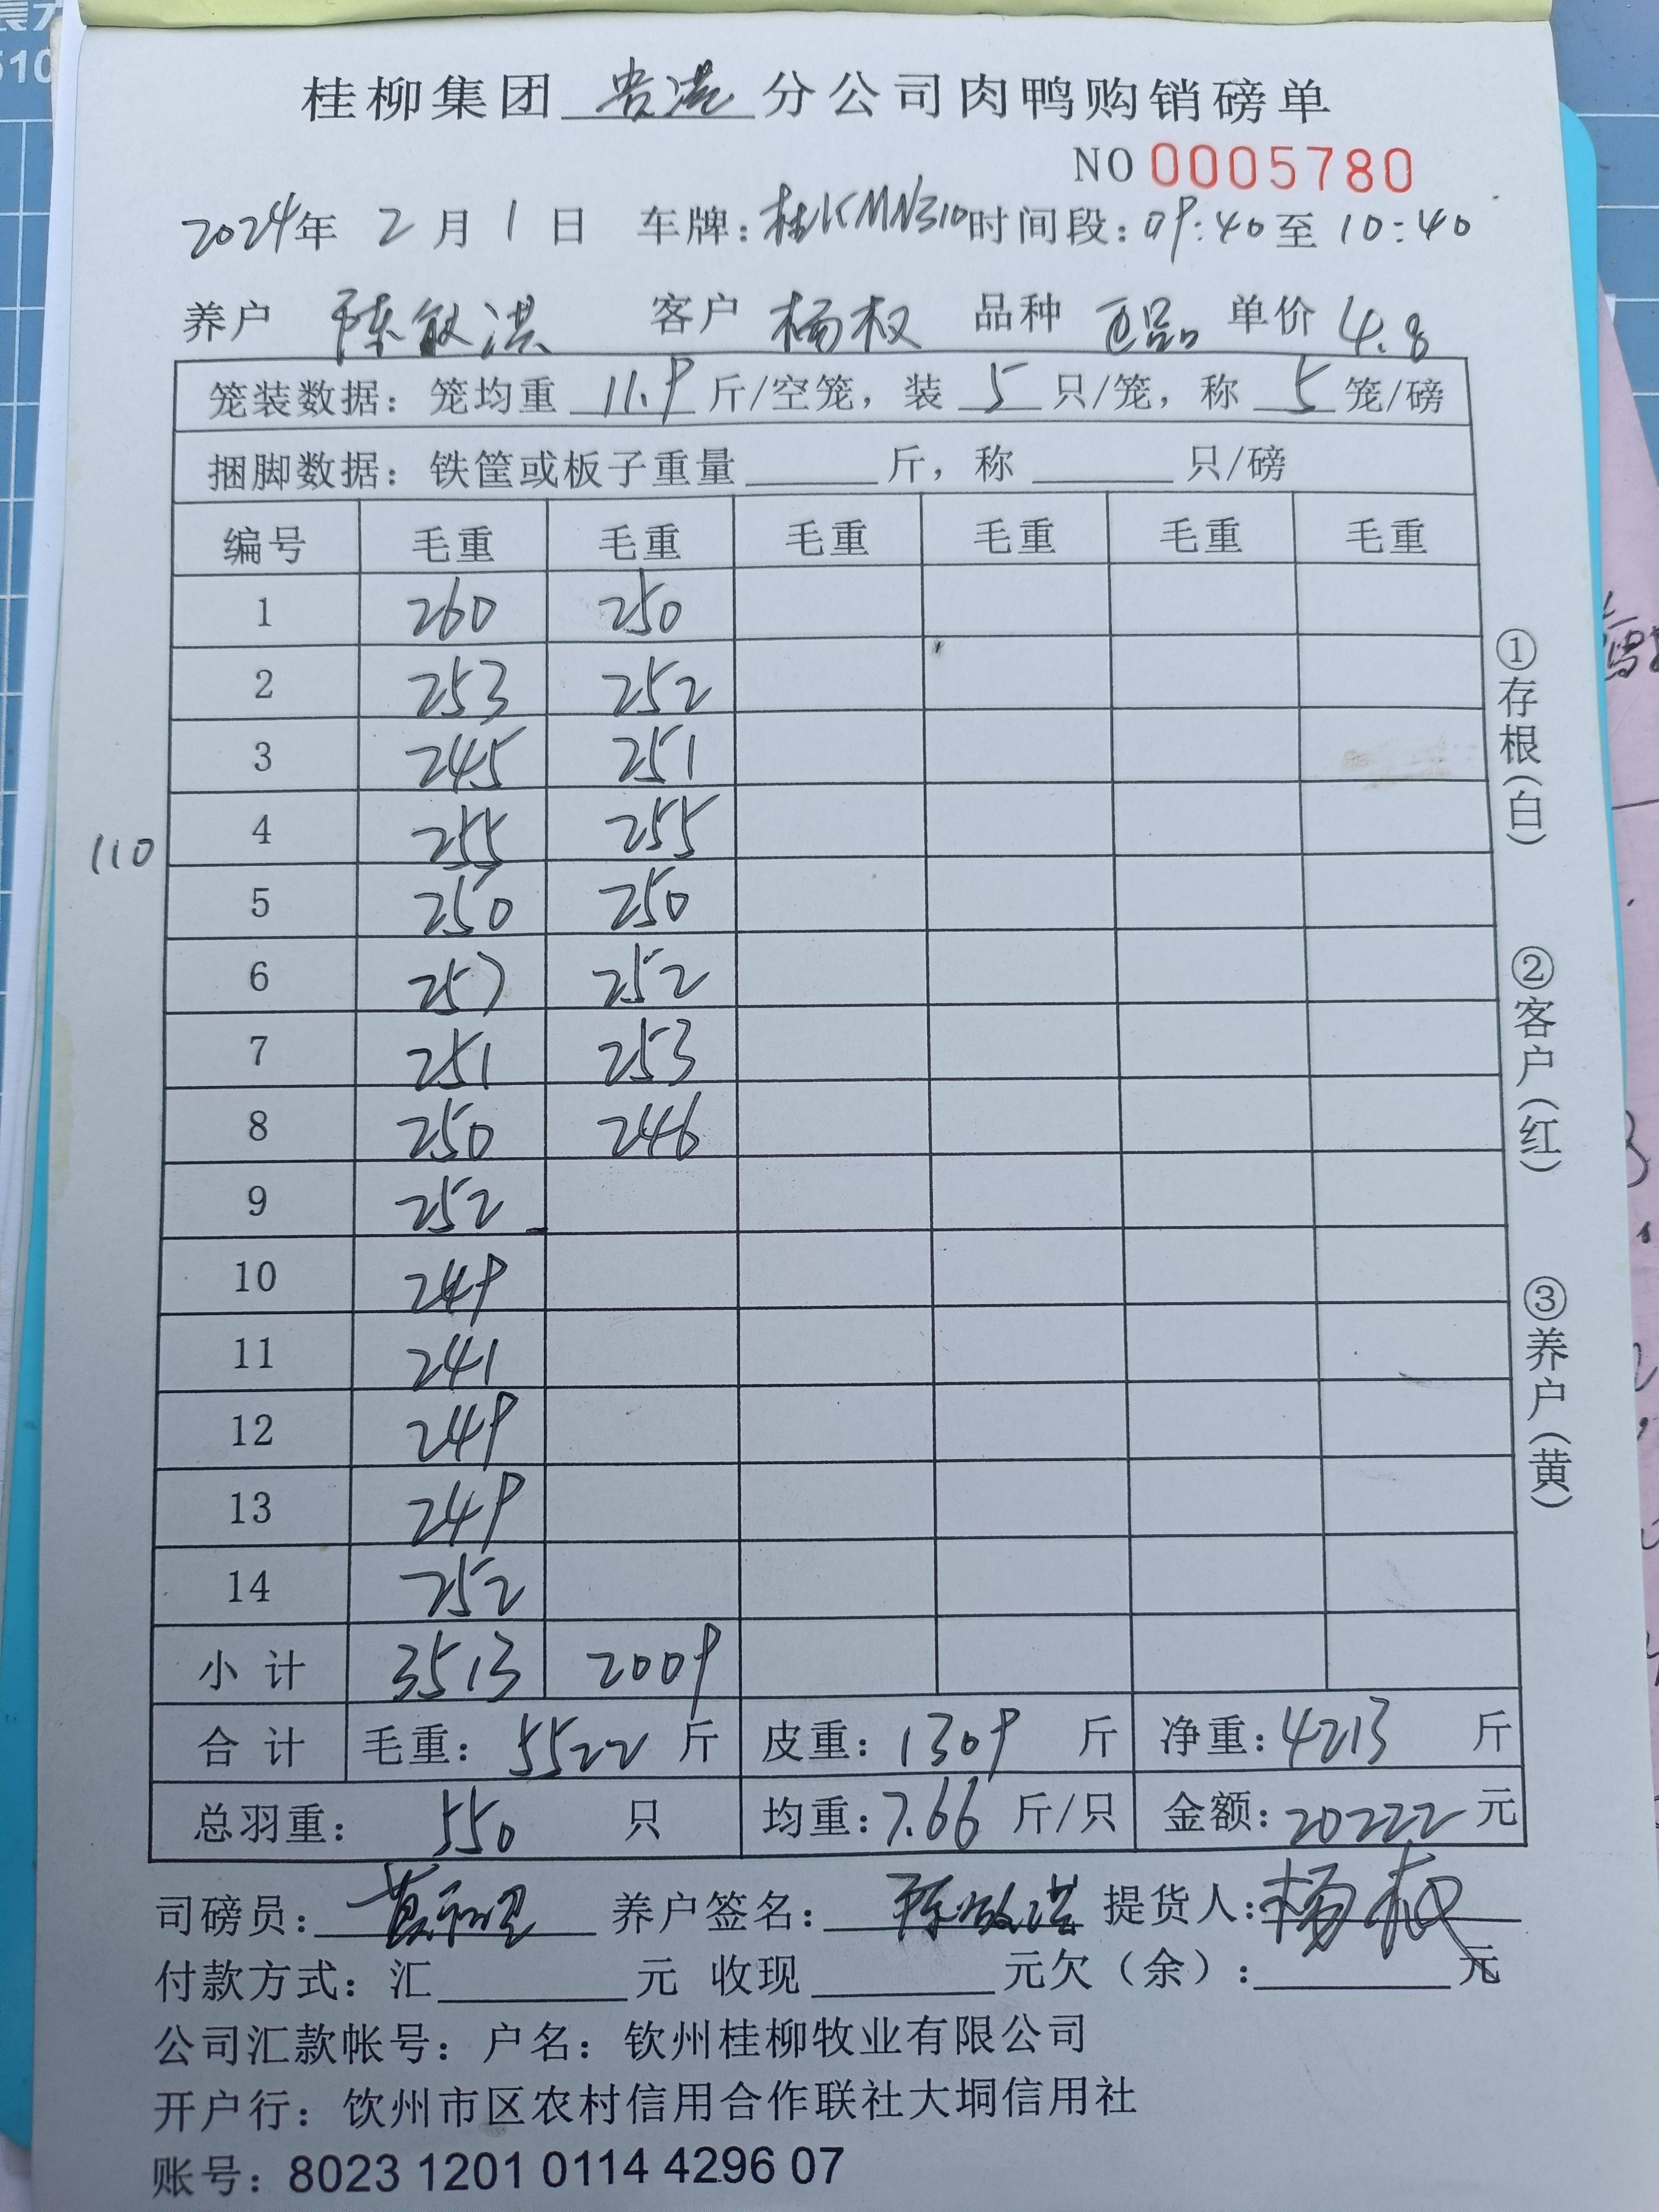 桂柳集团 贵港 分公司肉鸭购销磅单
NO 0005780
2024年 2月 1日 车牌:桂KMN310 时间段:09:40至10:40
养户 陈敏洪 客户 杨权 品种 正品 单价 4.8
笼装数据:笼均重 11.9 斤/空笼,装 5 只/笼,称 5 笼/磅
捆脚数据:铁筐或板子重量 斤,称 只/磅
编号 毛重 毛重 毛重 毛重 毛重 毛重
1 260 250
2 253 252
3 245 251
110
4 255 255
5 250 250
6 257 252
7 251 253
8 250 246
9 252
10 249
11 241
12 249
13 249
14 252
小计 3513 2009
合计 毛重:5522 斤 皮重:1309 斤 净重:4213 斤
总羽重:550 只 均重:7.66 斤/只 金额:20222 元
司磅员: 养户签名:陈敏洪 提货人:杨权
付款方式:汇 元 收现 元欠(余): 元
公司汇款帐号:户名:钦州桂柳牧业有限公司
开户行:饮州市区农村信用合作联社大垌信用社
账号:8023 1201 0114 4296 07
①存根(白)
②客户(红)
③养户(黄)
510